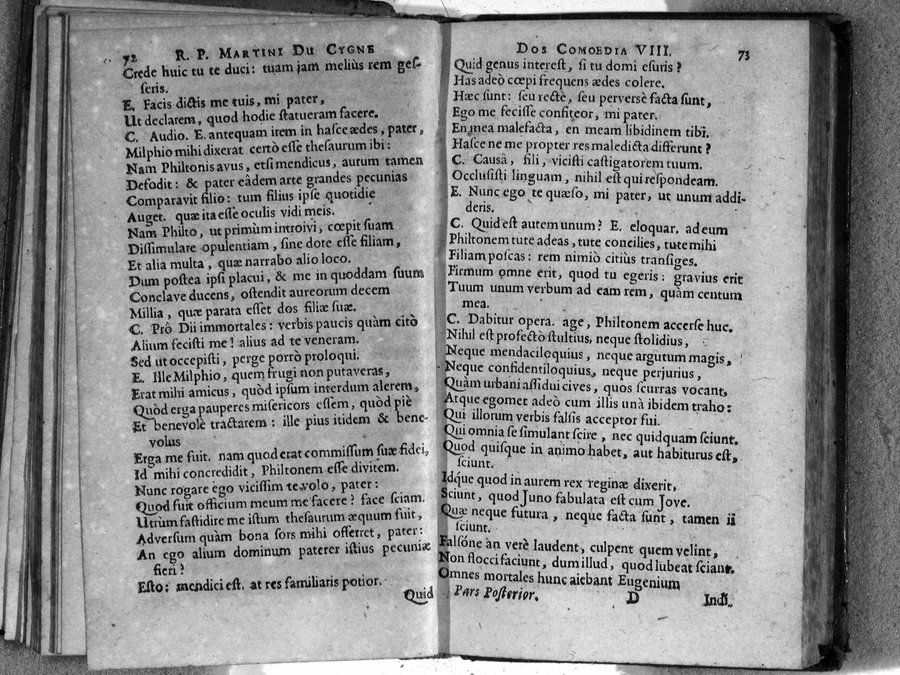 72 R. P. MARTINI DU CYGNE
Crede huic tu te duci: tuam jam meliùs rem ges-
seris.
E. Facis dictis me tuis, mi pater,
Ut declarem, quod hodie statueram facere.
C. Audio. E. antequam irem in hasce ædes, pater,
Milphio mihi dixerat certò esse thesaurum ibi:
Nam Philtonis avus, etsi mendicus, aurum tamen
Defodit: & pater eâdem arte grandes pecunias
Comparavit filio: tum filius ipse quotidie
Auget. quæ ita esse oculis vidi meis.
Nam Philto, ut primùm introivi, cœpit suam
Dissimulare opulentiam, sine dote esse filiam,
Et alia multa, quæ narrabo alio loco.
Dum postea ipsi placui, & me in quoddam suum
Conclave ducens, ostendit aureorum decem
Millia, quæ parata esset dos filiæ suæ.
C. Prô Dii immortales: verbis paucis quàm citò
Alium fecisti me! alius ad te veneram.
Sed ut occepisti, perge porrò proloqui.
E. Ille Milphio, quem frugi non putaveras,
Erat mihi amicus, quòd ipsum interdum alerem,
Quòd erga pauperes misericors essem, quòd piè
Et benevolè tractarem: ille pius itidem & bene-
volus
Erga me fuit. nam quod erat commissum suæ fidei,
Id mihi concredidit, Philtonem esse divitem.
Nunc rogare ego vicissim te volo, pater:
Quod fuit officium meum me facere? face sciam.
Utrùm fastidire me istum thesaurum æquum fuit,
Adversùm quàm bona sors mihi offerret, pater:
An ego alium dominum paterer istius pecuniæ
fieri?
Esto: mendici est. at res familiaris potior.
Quid
DOS COMOEDIA VIII. 73
Quid genus interest, si tu domi esuris?
Has adeò cœpi frequens ædes colere.
Hæc sunt: seu rectè, seu perversè facta sunt,
Ego me fecisse confiteor, mi pater.
En mea malefacta, en meam libidinem tibi.
Hasce ne me propter res maledicta differunt?
C. Causâ, fili, vicisti castigatorem tuum.
Occlusisti linguam, nihil est qui respondeam.
E. Nunc ego te quæso, mi pater, ut unum addi-
deris.
C. Quid est autem unum? E. eloquar. ad eum
Philtonem tute adeas, tute concilies, tute mihi
Filiam poscas: rem nimiò citiùs transiges.
Firmum omne erit, quod tu egeris: gravius erit
Tuum unum verbum ad eam rem, quàm centum
mea.
C. Dabitur opera. age, Philtonem accerse huc.
Nihil est profectò stultius, neque stolidius,
Neque mendaciloquius, neque argutum magis,
Neque confidentiloquius, neque perjurius,
Quàm urbani assidui cives, quos scurras vocant,
Atque egomet adeò cum illis unà ibidem traho:
Qui illorum verbis falsis acceptor fui.
Qui omnia se simulant scire, nec quidquam sciunt.
Quod quisque in animo habet, aut habiturus est,
sciunt.
Idque quod in aurem rex reginæ dixerit,
Sciunt, quod Juno fabulata est cum Jove.
Quæ neque futura, neque facta sunt, tamen ii
sciunt.
Falsóne an verè laudent, culpent quem velint,
Non flocci faciunt, dum illud, quod lubeat sciant.
Omnes mortales hunc aiebant Eugenium
Pars Posterior. D Indi